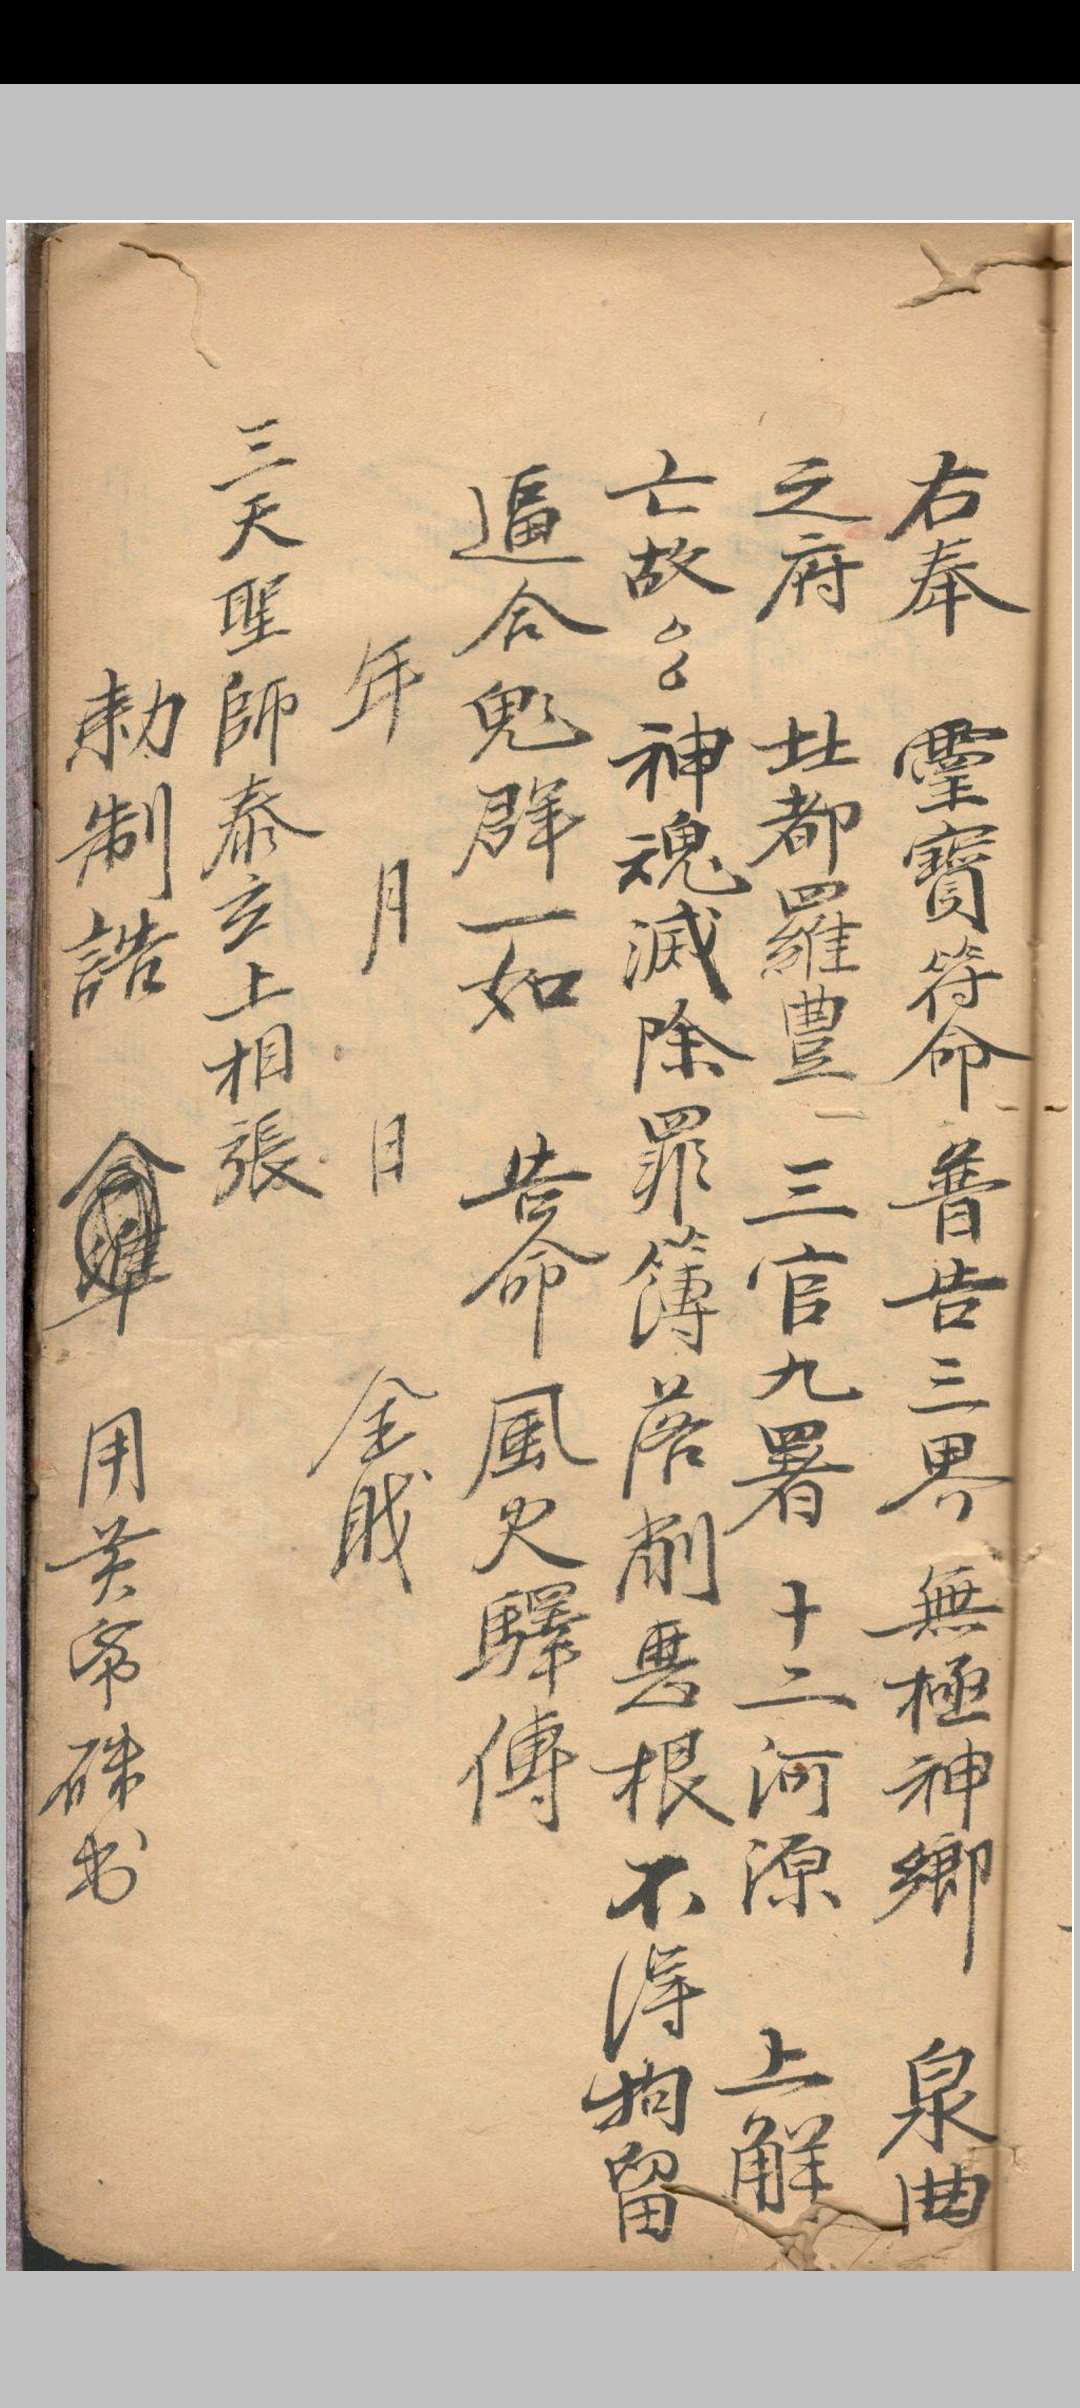 右奉 靈寶符命 普告三界 無極神鄉 泉曲
之府 北都羅豐 三官九署 十二河源 上解
亡故厶厶神魂滅除罪簿落削惡根不得拘留
逼合鬼群一如 告命風火驛傳
年 月 日 全賊
三天聖師泰玄上相張
勅制誥 用黃帋硃书